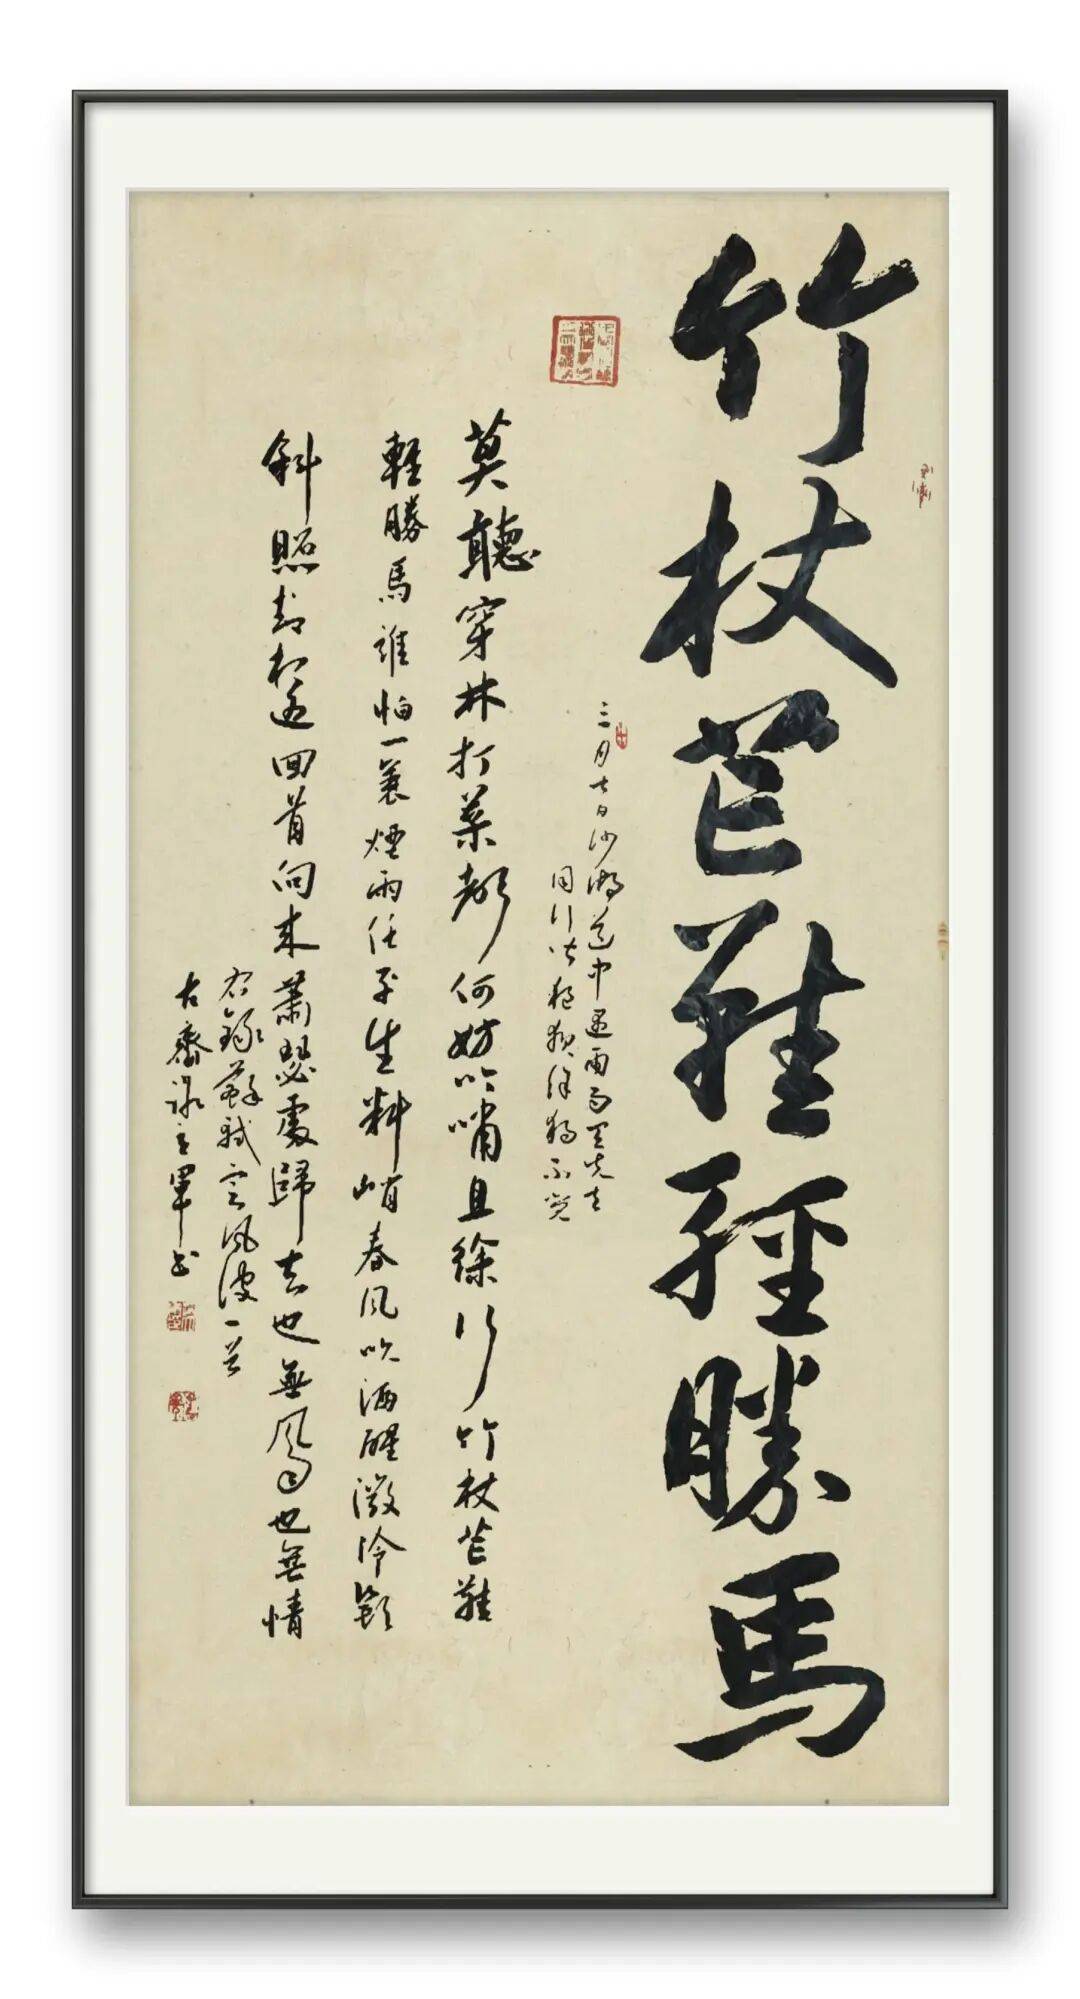 竹杖芒鞋輕勝馬
三月七日沙湖道中遇雨雨具先去
同行皆狼狽余獨不覺
莫聽穿林打葉聲何妨吟嘯且徐行竹杖芒鞋
輕勝馬誰怕一蓑煙雨任平生料峭春風吹酒醒微冷山頭
斜照却相迎回首向來蕭瑟處歸去也無風雨也無情
右錄蘇軾定風波一首
古齋立軍書